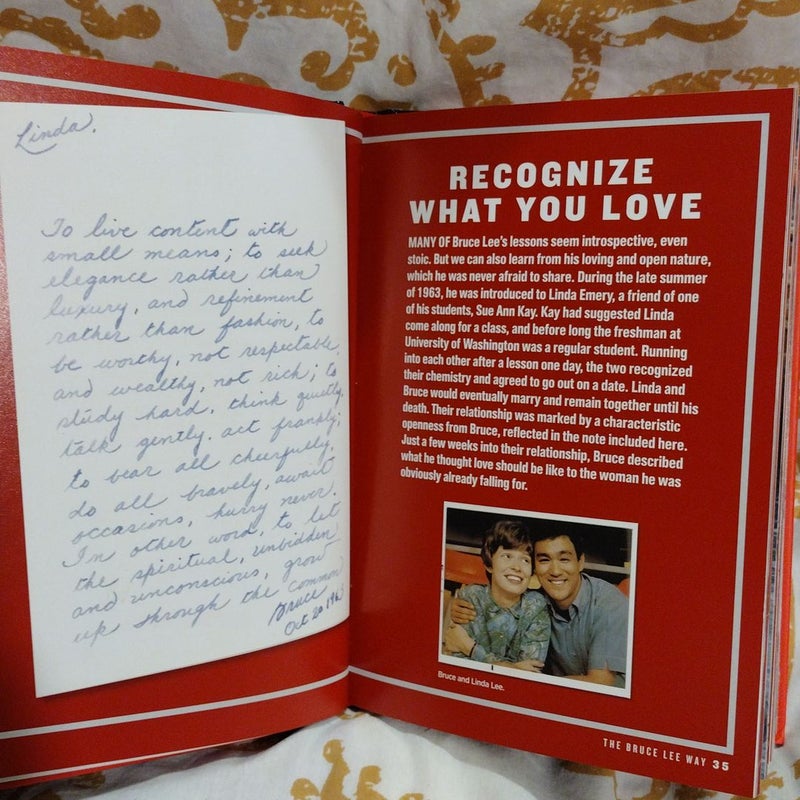 Linda.
To live content with
small means; to seek
elegance rather than
luxury, and refinement
rather than fashion, to
be worthy, not respectable,
and wealthy, not rich; to
study hard, think quietly,
talk gently. act frankly;
to bear all cheerfully,
do all bravely, await
occasions, hurry never.
In other word, to let
the spiritual, unbidden
and unconscious, grow
up through the common
Bruce
Oct 20 1963
RECOGNIZE
WHAT YOU LOVE
MANY OF Bruce Lee's lessons seem introspective, even
stoic. But we can also learn from his loving and open nature,
which he was never afraid to share. During the late summer
of 1963, he was introduced to Linda Emery, a friend of one
of his students, Sue Ann Kay. Kay had suggested Linda
come along for a class, and before long the freshman at
University of Washington was a regular student. Running
into each other after a lesson one day, the two recognized
their chemistry and agreed to go out on a date. Linda and
Bruce would eventually marry and remain together until his
death. Their relationship was marked by a characteristic
openness from Bruce, reflected in the note included here.
Just a few weeks into their relationship, Bruce described
what he thought love should be like to the woman he was
obviously already falling for.
Bruce and Linda Lee.
THE BRUCE LEE WAY 35